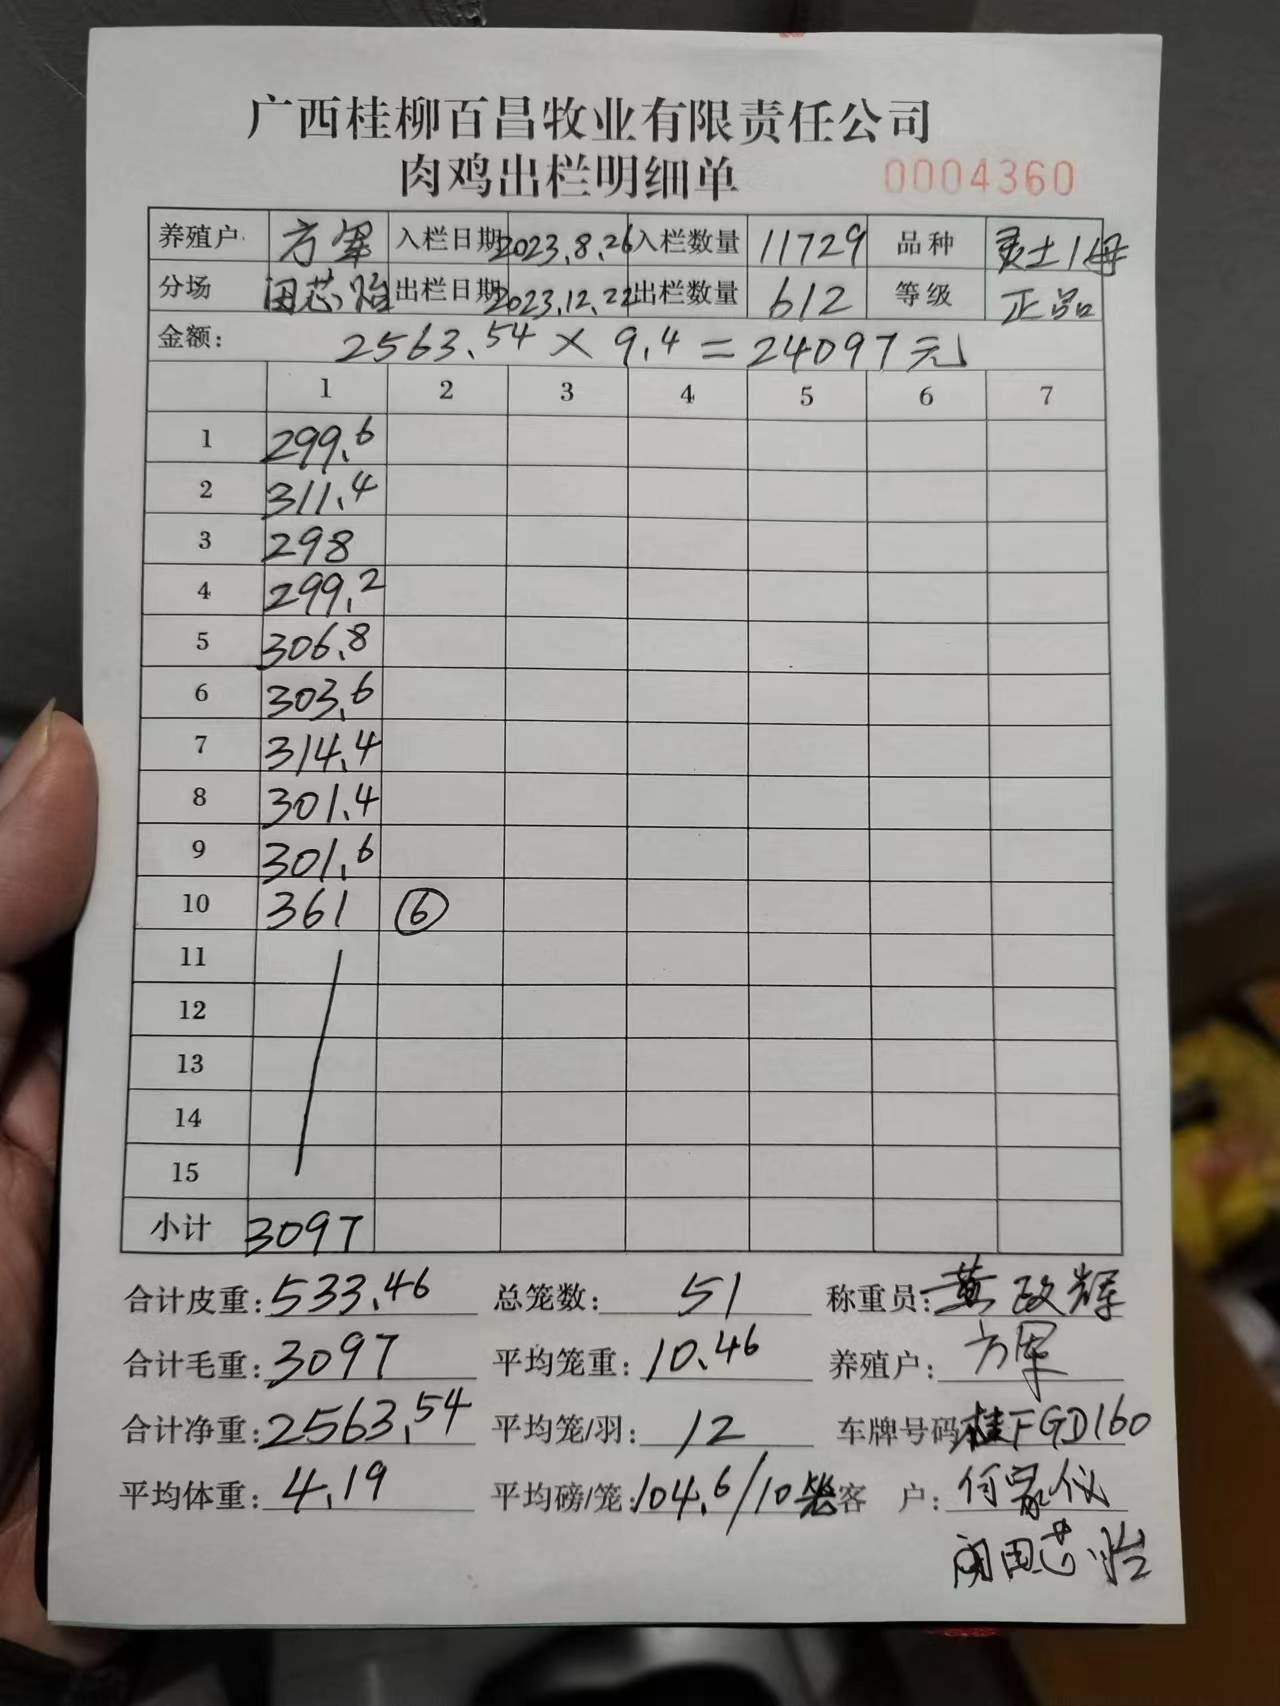 广西桂柳百昌牧业有限责任公司
肉鸡出栏明细单 0004360
养殖户 方军 入栏日期 2023.8.26 入栏数量 11729 品种 土1母
分场 闭芯怡 出栏日期 2023.12.22 出栏数量 612 等级 正品
金额: 2563.54 × 9.4 = 24097元
1 2 3 4 5 6 7
1 299.6
2 311.4
3 298
4 299.2
5 306.8
6 303.6
7 314.4
8 301.4
9 301.6
10 361 ⑥
11
12
13
14
15
小计 3097
合计皮重: 533.46 总笼数: 51 称重员: 黄政辉
合计毛重: 3097 平均笼重: 10.46 养殖户: 方军
合计净重: 2563.54 平均笼/羽: 12 车牌号码 桂FGD160
平均体重: 4.19 平均磅/笼: 104.6/10 客 户: 何家仪
芯怡